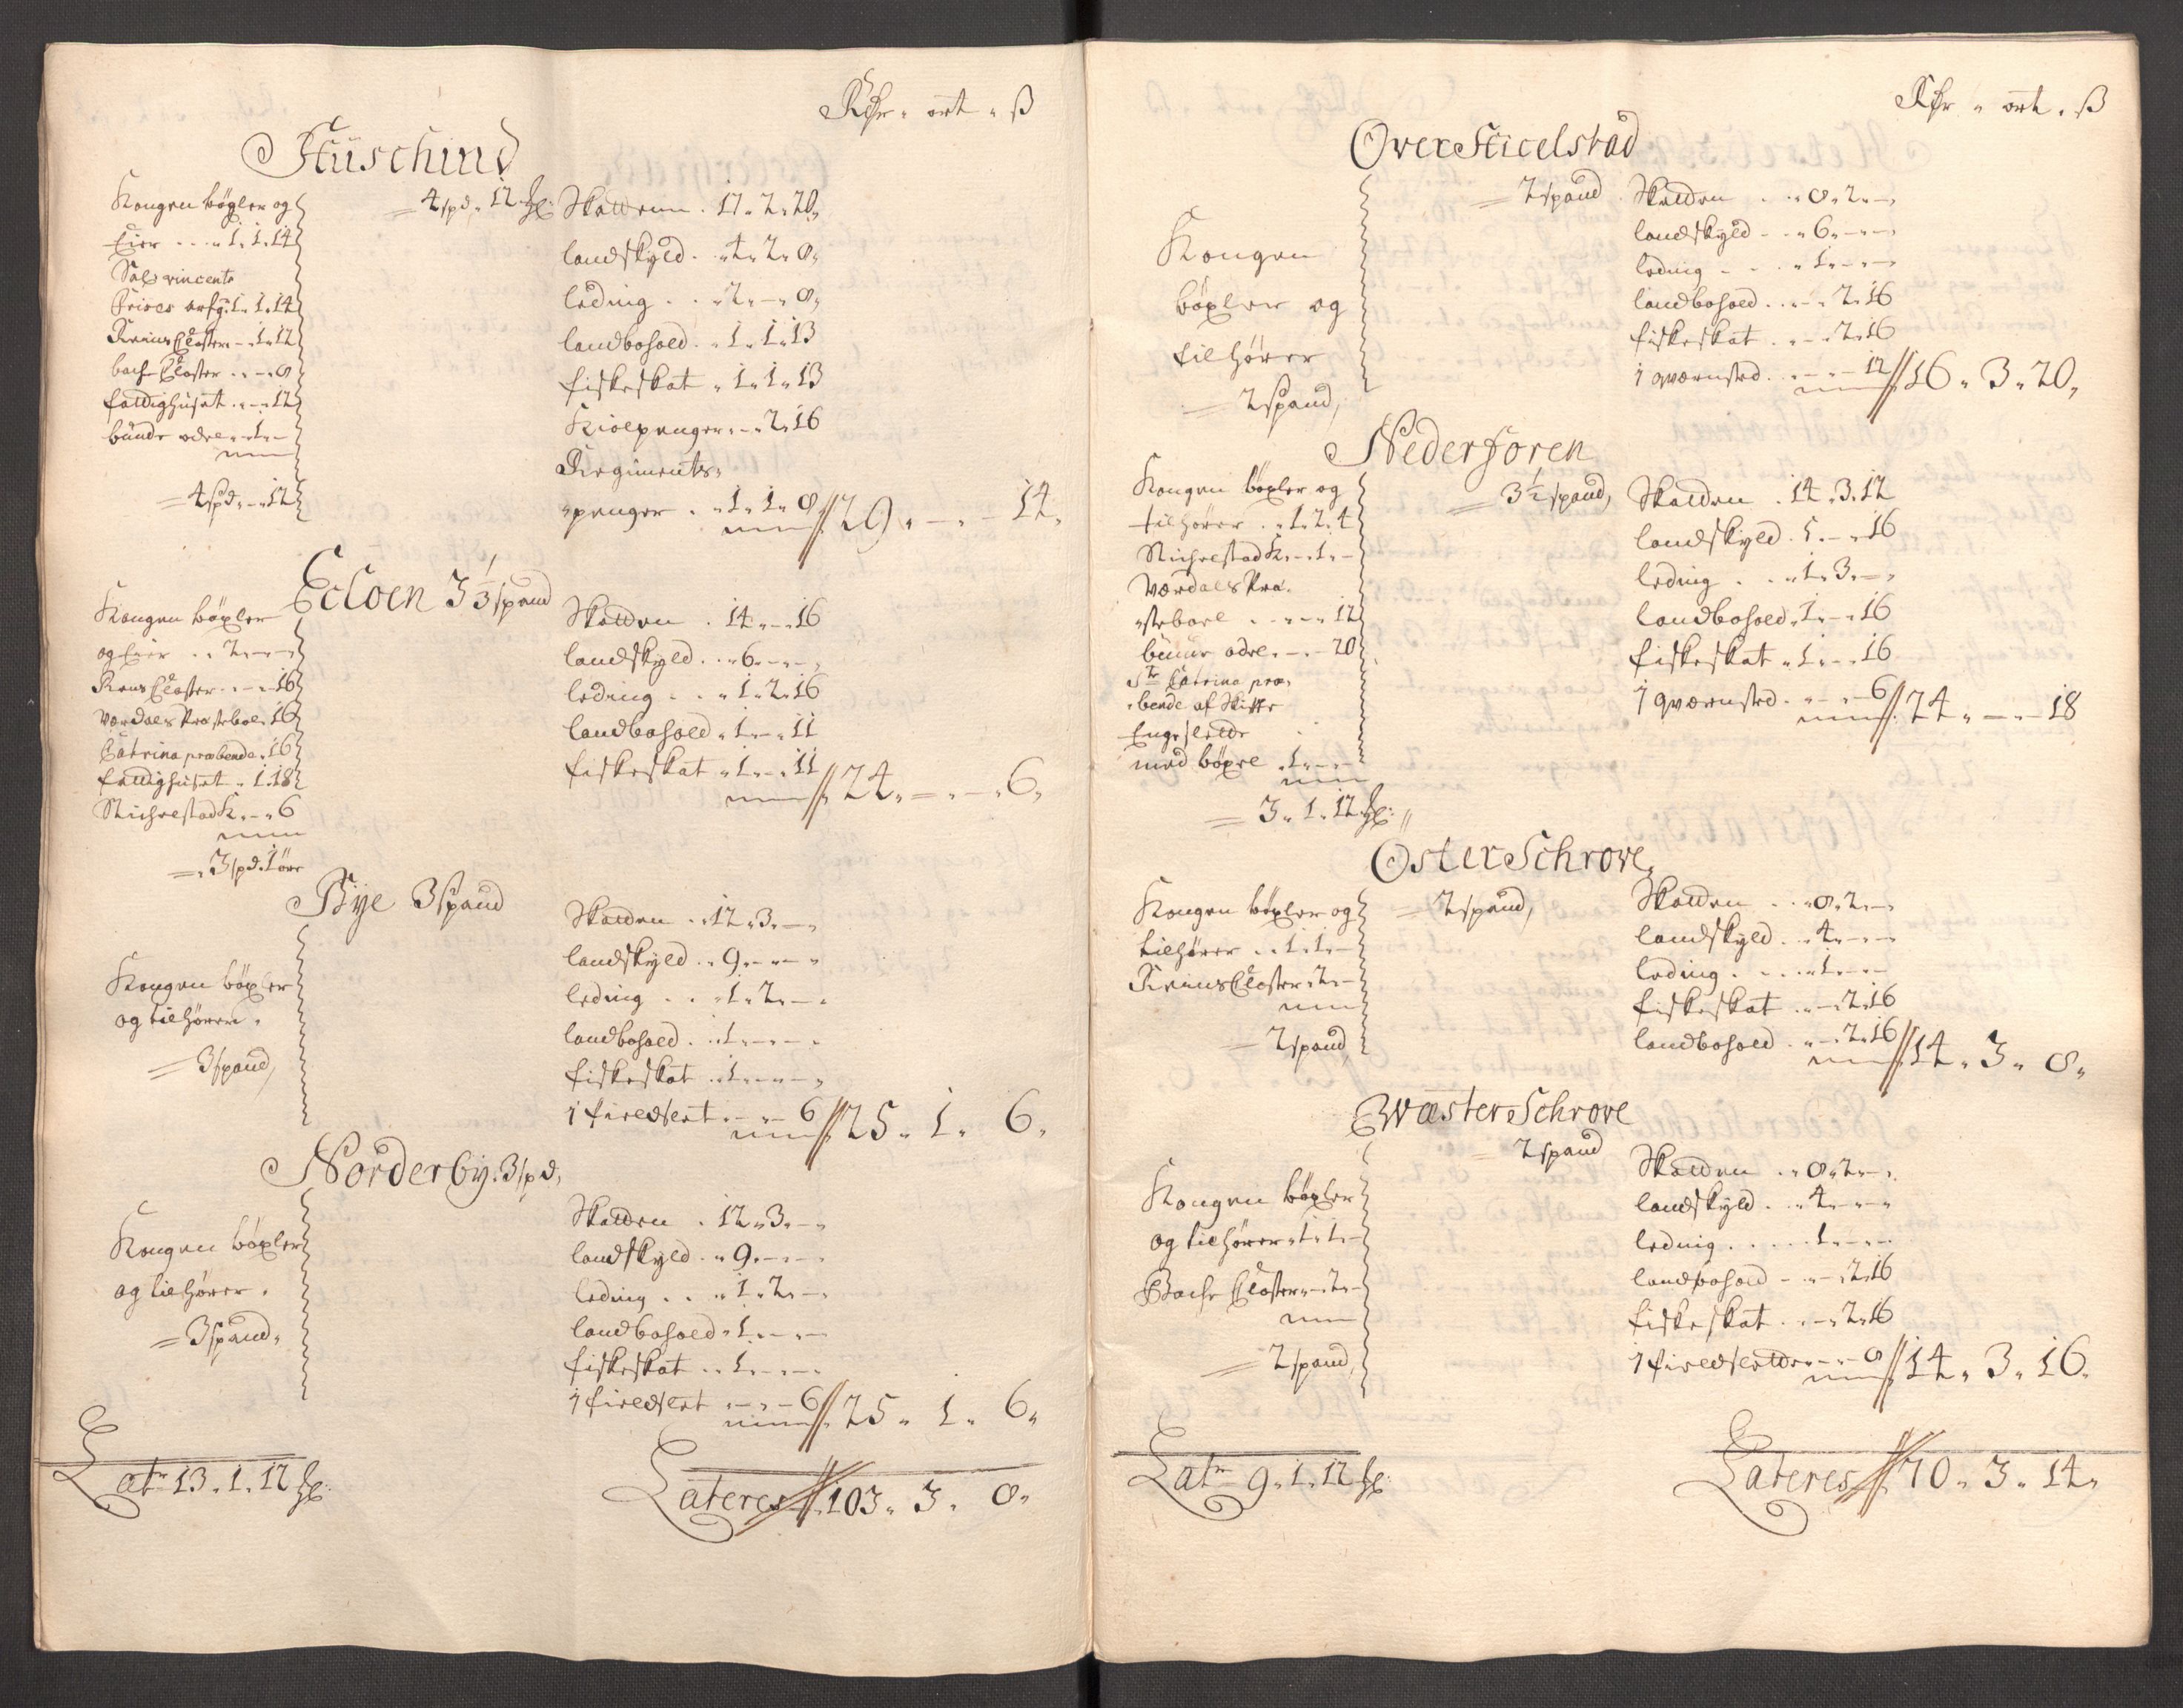 Rdr „ ort „ ß
Hüschind
4 spd. 12 ħ:
Kongen böxler og
Eier . . . . 1. 1. 14
Sal: vincents
Krins Closter - . 1. 12
bach Closter . . - . 8
fattighuset . . - . 12
bunde odel . . 1. -
= 4 spd. - . 12
Skattenn . 17. 2. 20.
landskyld . . 4. 2. 8.
leding . . . 2. - . 8.
landbohold . . 1. 1. 13
fiskeskat . 1. 1. 13
Kiolpenger . - . 2. 16
Regiments.
penger . . 1. 1. 8. // 29. - . - 14.
Ecloen 3 1/3 spand
Kongen böxler
og Eier . . 2. - . -
Rens Closter . - . 16
Værdals Præstebol. 16
Catrina præbende . 16
fattighuset . 1. 18
Stichelstad K. - . 6
= 3 spd. 1 öre
Skatten . 14. - . 16
landskyld . . 6. - . -
leding . . . 1. 2. 16
landbohold . 1. - . 11
fiskeskat . 1. - . 11 // 24. - . - . 6.
Bye 3 spand
Kongen böxler
og tilhörer.
= 3 spand,
Skatten . . 12. 3. -
landskyld . . 9. - . -
leding . . . 1. 2. -
landbohold . . 1. - . -
fiskeskat . . 1. - . -
1 fieldslet . - . - 6 // 25. 1. 6.
Norderby. 3 spd.
Kongen böxler
og tilhörer.
= 3 spand.
Skatten . 12. 3. -
landskyld . . 9. - . -
leding . . . 1. 2. -
landbohold . 1. - . -
fiskeskat . . 1. - . -
1 fieldslet . - . - 6 // 25. 1. 6.
Latr 13. 1. 12 ħ:
Lateres // 103. 3. 8.
Rdr „ ort „ ß
Over Sticelstad
= 2 spand
Kongen
böxler og
tilhörer
= 2 spand,
Skatten . . 8. 2. -
landskyld . . 6. - . -
leding . . . 1. - . -
landbohold . . - . 2. 16
fiskeskat . . - . 2. 16
1 qvernsted . . - . - 12 // 16. 3. 20.
Nederforen
= 3 1/2 spand,
Kongen böxler og
tilhörer . . 1. 2. 4
Stichelstad K. - . 1. -
Værdals Præ.
stebol . . - . - 12
bunde odel. - . - 20
Ste Catrina præ.
bende af Skitte
Engeslette
med böxel . 1. - . -
= 3. 1. 12 ħ:
Skatten . 14. 3. 12
landskyld . 5. - . 16
leding . . . 1. 3. -
landbohold . 1. - . 16
fiskeskat . 1. - . 16
1 qvernsted . . - . - 6 // 24. - . - 18
Öster Schrove
= 2 spand,
Kongen böxler og
tilhörer . . 1. 1. -
Reins Closter . 2. -
= 2 spand
Skatten . . 8. 2. -
landskyld . . 4. - . -
leding . . . . 1. - . -
fiskeskat . . - . 2. 16
landbohold . . - . 2. 16 // 14. 3. 8.
Wæster Schrove
= 2 spand
Kongen böxler
og tilhörer . 1. 1. -
Bache Closter . - . 2. -
= 2 spand,
Skatten . . 8. 2. -
landskyld . . 4. - . -
leding . . . . 1. - . -
landbohold - . - . 2. 16
fiskeskat . . - . 2. 16
1 fieldslette . - . - 8 // 14. 3. 16.
Latr 9. 1. 12 ħ:
Lateres // 70. 3. 14.